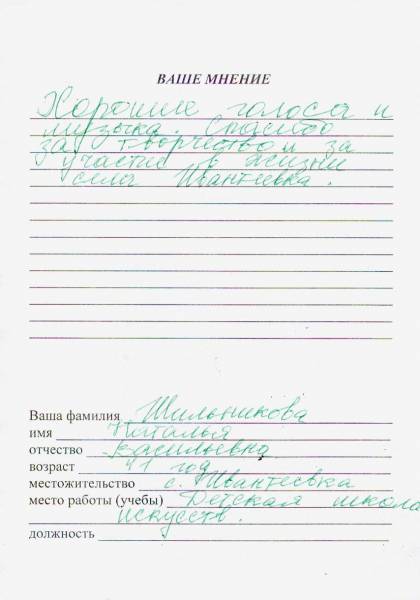 ВАШЕ МНЕНИЕ
Хорошие голоса и
музыка. Спасибо
за творчество и за
участие в жизни
села Ивантеевка.
Ваша фамилия Шильникова
имя Наталья
отчество Васильевна
возраст 41 год
местожительство с. Ивантеевка
место работы (учебы) Детская школа
искусств.
должность